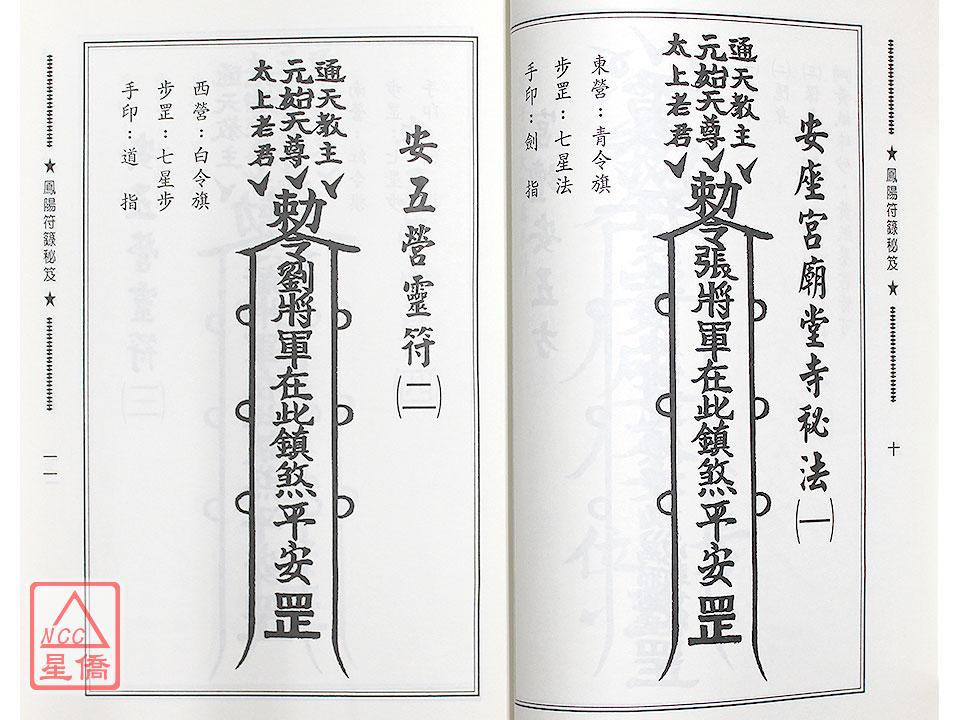 ★鳳陽符籙秘笈★
十
安座宮廟堂寺秘法(一)
通天教主
元始天尊
太上老君
勅令張將軍在此鎮煞平安罡
東營：青令旗
步罡：七星法
手印：劍指
安五營靈符(二)
通天教主
元始天尊
太上老君
勅令劉將軍在此鎮煞平安罡
西營：白令旗
步罡：七星步
手印：道指
★鳳陽符籙秘笈★
一一
NCC
星僑